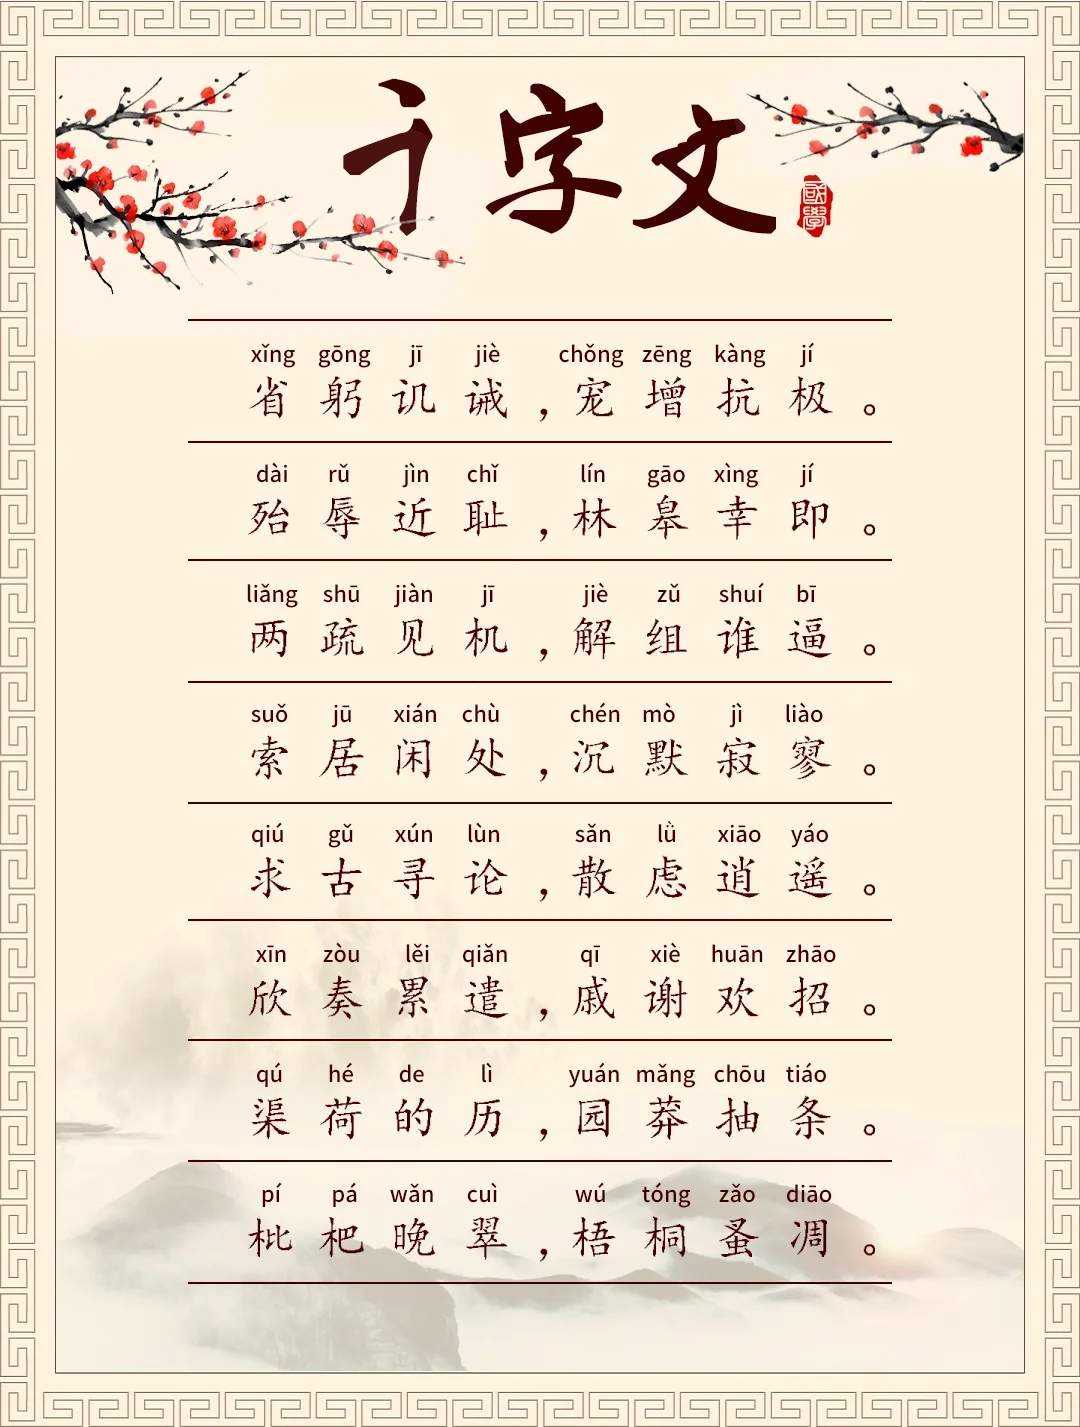 千字文
國學
xǐng gōng jī jiè chǒng zēng kàng jí
省躬讥诫，宠增抗极。
dài rǔ jìn chǐ lín gāo xìng jí
殆辱近耻，林皋幸即。
liǎng shū jiàn jī jiè zǔ shuí bī
两疏见机，解组谁逼。
suǒ jū xián chù chén mò jì liào
索居闲处，沉默寂寥。
qiú gǔ xún lùn sǎn lǜ xiāo yáo
求古寻论，散虑逍遥。
xīn zòu lěi qiǎn qī xiè huān zhāo
欣奏累遣，戚谢欢招。
qú hé de lì yuán mǎng chōu tiáo
渠荷的历，园莽抽条。
pí pá wǎn cuì wú tóng zǎo diāo
枇杷晚翠，梧桐蚤凋。